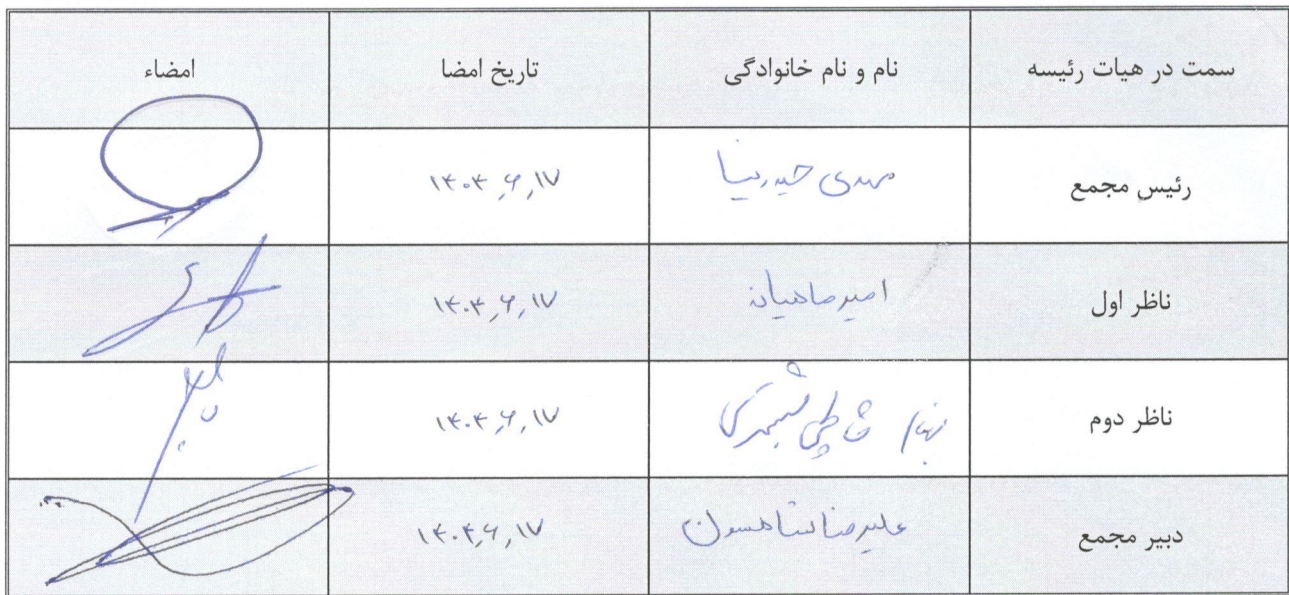 سمت در هیات رئیسه نام و نام خانوادگی تاریخ امضا امضاء
رئیس مجمع مهدی حیدرنیا ۱۴۰۴,۶,۱۷
ناظر اول امیر ماهیان ۱۴۰۴,۶,۱۷
ناظر دوم ۱۴۰۴,۶,۱۷
دبیر مجمع علیرضا شاهسون ۱۴۰۴,۶,۱۷